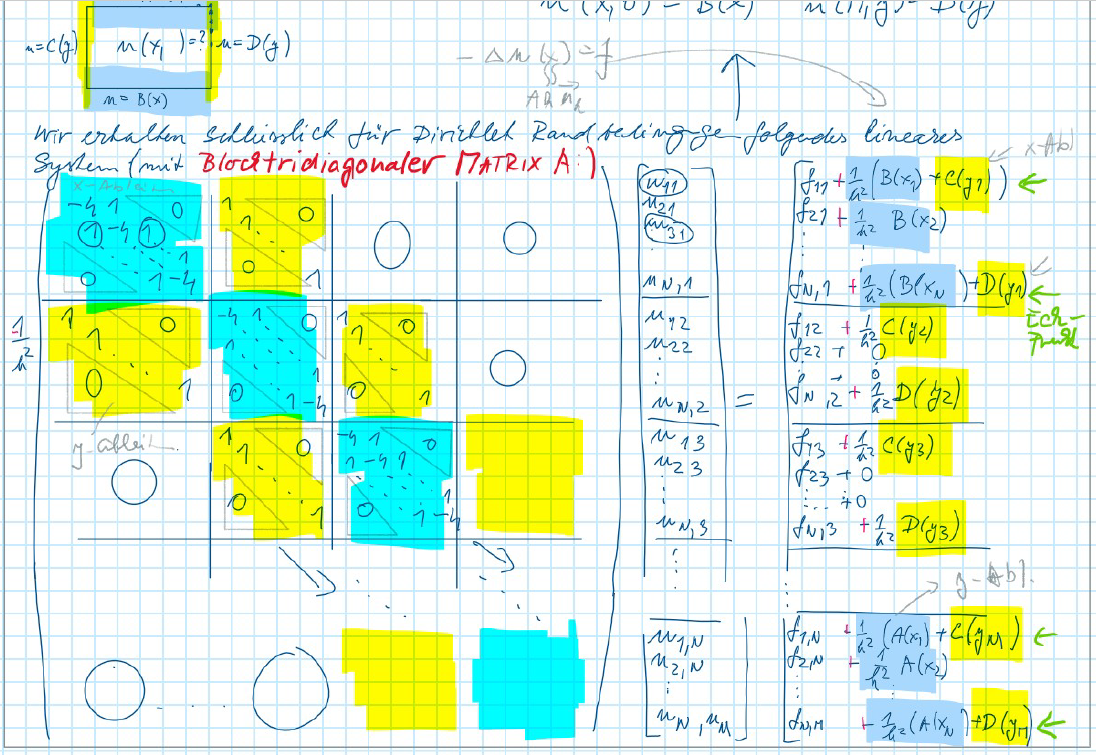 u(x,0) = B(x) u(1,y) = D(y)
u=C(y) u(x, )=? u=D(y)
u = B(x)
- Δu(x) = f
Wir erhalten schliesslich für Dirichlet Randbedingunge folgendes lineares
System (mit Blocktridiagonaler MATRIX A:)
x-Abl
x-Ableit.
-4 1 0
1 -4 1
0 1 -4
1 0
1
0 1
0
0
1/h²
1 0
1
0 1
-4 1 0
1
0 1 -4
1 0
1
0 1
0
y-ableit.
0
1 0
1
0 1
-4 1 0
1 -4 1
1
0 1 -4
0
0
u11
u21
u31
uN,1
u12
u22
uN,2
u13
u23
uN,3
u1,N
u2,N
uN,
=
f11 + 1/h² (B(x1) + C(y1))
f21 + 1/h² B(x2)
fN,1 + 1/h² (B(xN) + D(y1)
Eck-
Punkt
f12 + 1/h² C(y2)
f22 + 0
fN,2 + 1/h² D(y2)
f13 + 1/h² C(y3)
f23 + 0
+0
fN,3 + 1/h² D(y3)
y-Abl.
f1,N + 1/h² (A(x1) + C(yM)
f2,N + 1/h² A(x2)
fN,M + 1/h² (A(xN) + D(yM)